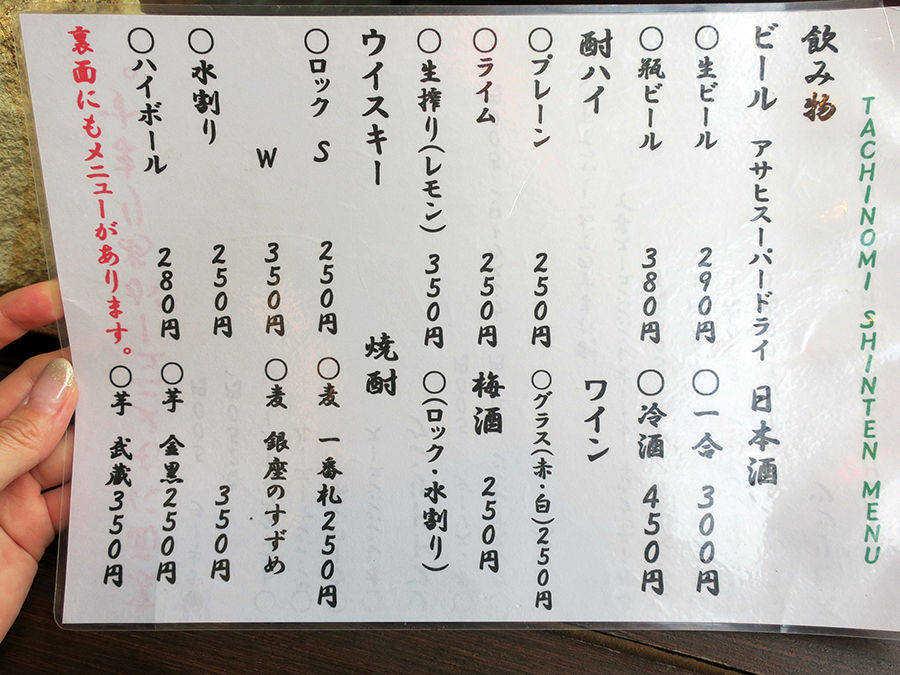 TACHINOMI SHINTEN MENU
飲み物
ビール アサヒスーパードライ
〇生ビール 290円
〇瓶ビール 380円
酎ハイ
〇プレーン 250円
〇ライム 250円
〇生搾り(レモン) 350円
ウイスキー
〇ロック S 250円
W 350円
〇水割り 250円
〇ハイボール 280円
日本酒
〇一合 300円
〇冷酒 450円
ワイン
〇グラス(赤・白)250円
梅酒 250円
〇(ロック・水割り)
焼酎
〇麦 一番札250円
〇麦 銀座のすずめ
350円
〇芋 金黒250円
〇芋 武蔵350円
裏面にもメニューがあります。